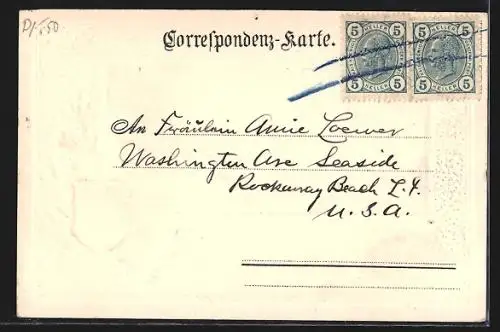 Pf-.50
Correspondenz-Karte.
5 HELLER 5
5 HELLER 5
5 HELLER 5
5 HELLER 5
An Fräulein Annie Loewer
Washington Ave Seaside
Rockaway Beach L.Y.
U.S.A.